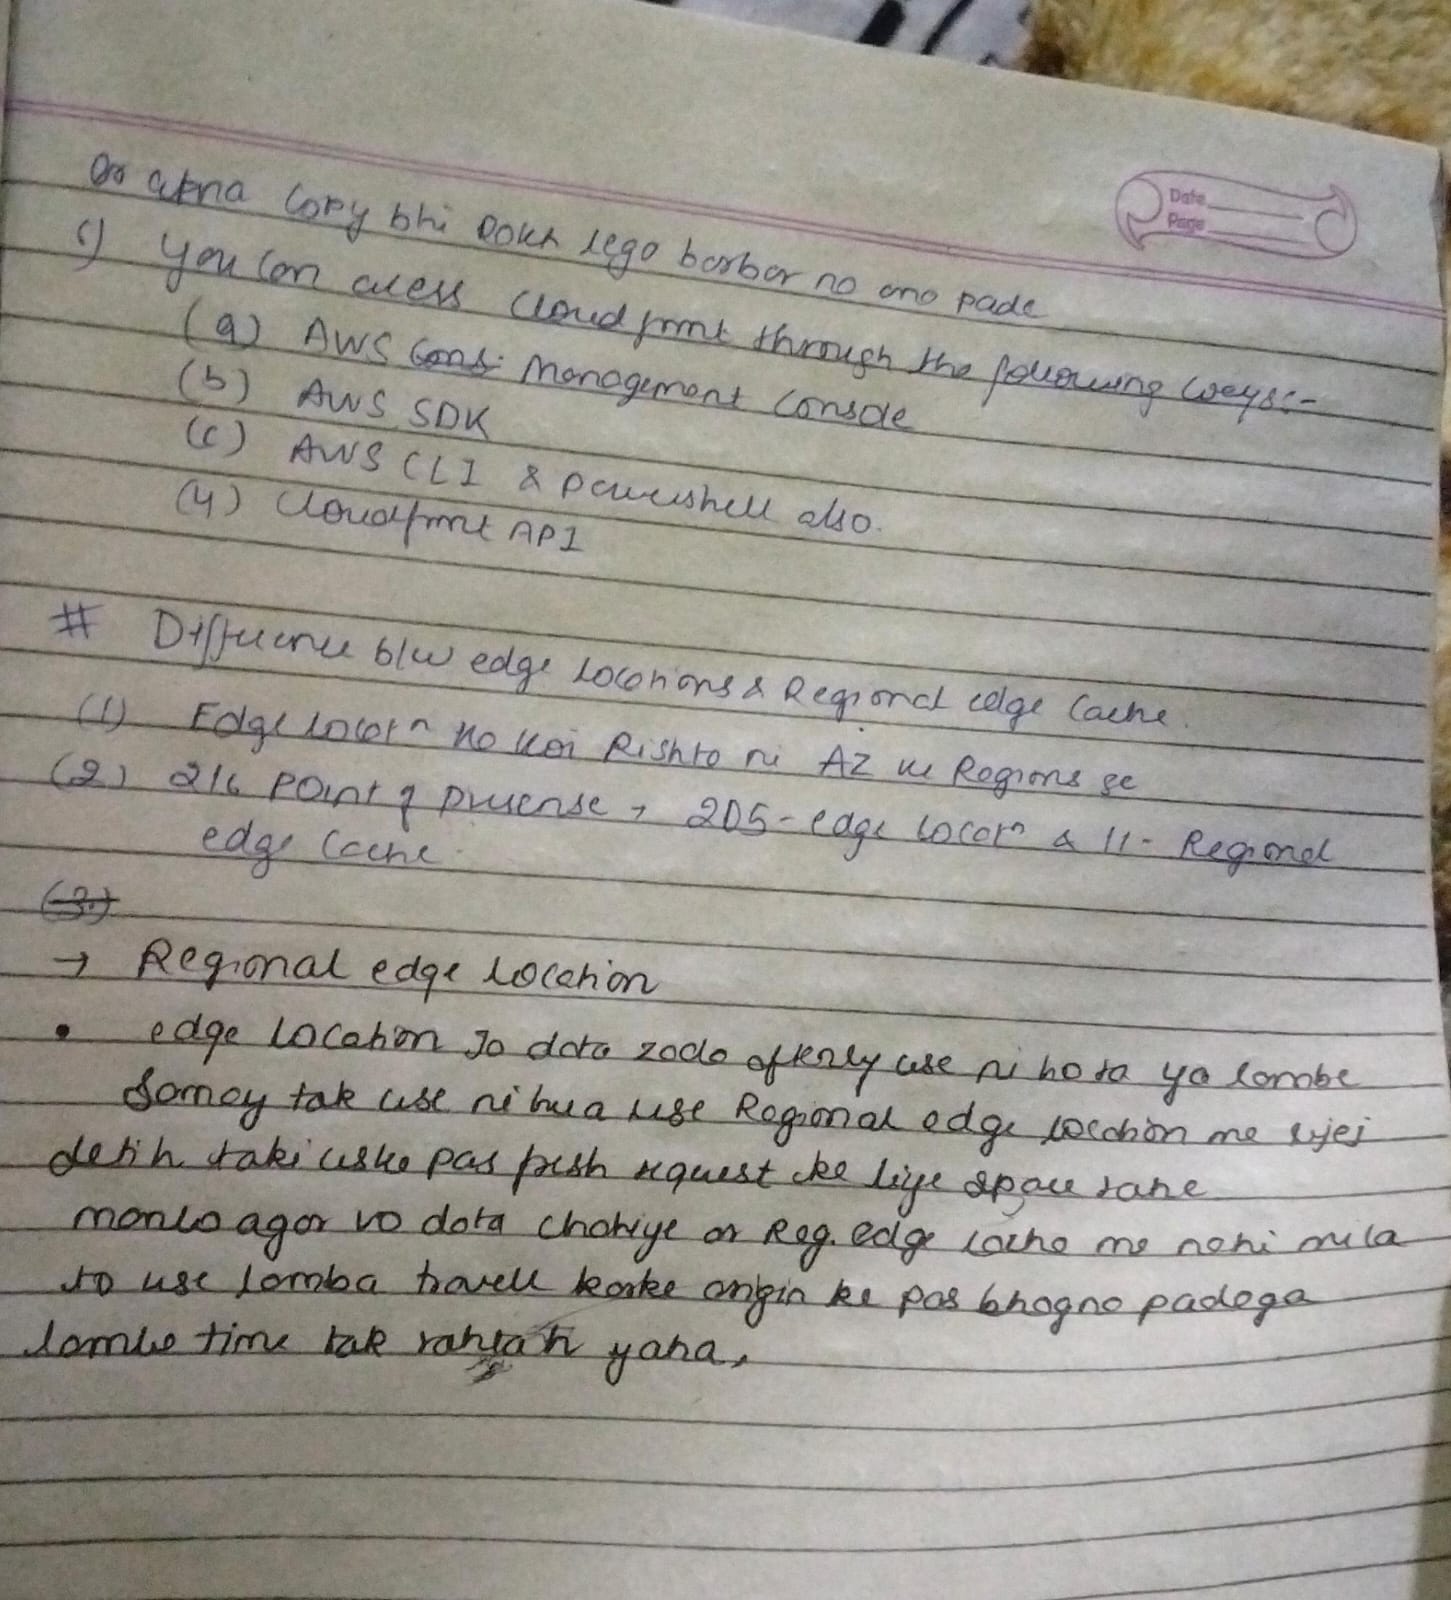 or apna copy bhi rokh lega barbar no ana pade
Date
Page
1) You can acess Cloudfront through the following ways:-
(a) AWS Cons- Management Console
(b) AWS SDK
(c) AWS CLI & powershell also.
(4) Cloudfront API
# Difference b/w edge locations & Regional edge Cache.
(1) Edge locatn ko koi Rishta ni AZ ke Regions se
(2) 216 Point of presense, 205-edge locatn & 11- Regional
edge Cache.
(3.)
→ Regional edge location
• edge location Jo data zada oftenly use ni hota ya lambe
Samay tak use ni hua use Regional edge location me
detih taki uske pas fresh request ke liye space rahe
manlo agar vo data chahiye or Reg. edge cache me nahi mila
to use lamba travell karke origin ke pas bhagna padega
lambe time tak rahtah yaha,